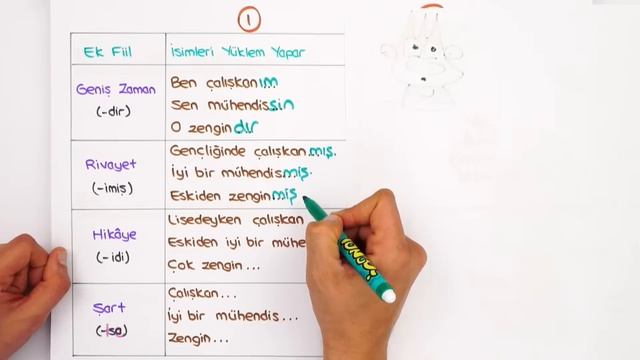 1
Ek Fiil
İsimleri Yüklem Yapar
Geniş Zaman
(-dir)
Ben çalışkanım
Sen mühendissin
O zengindir
Rivayet
(-imiş)
Gençliğinde çalışkanmış.
İyi bir mühendismiş.
Eskiden zenginmiş
Hikâye
(-idi)
Lisedeyken çalışkan
Eskiden iyi bir mühe
Çok zengin...
Şart
(-isa)
Çalışkan...
İyi bir mühendis...
Zengin...